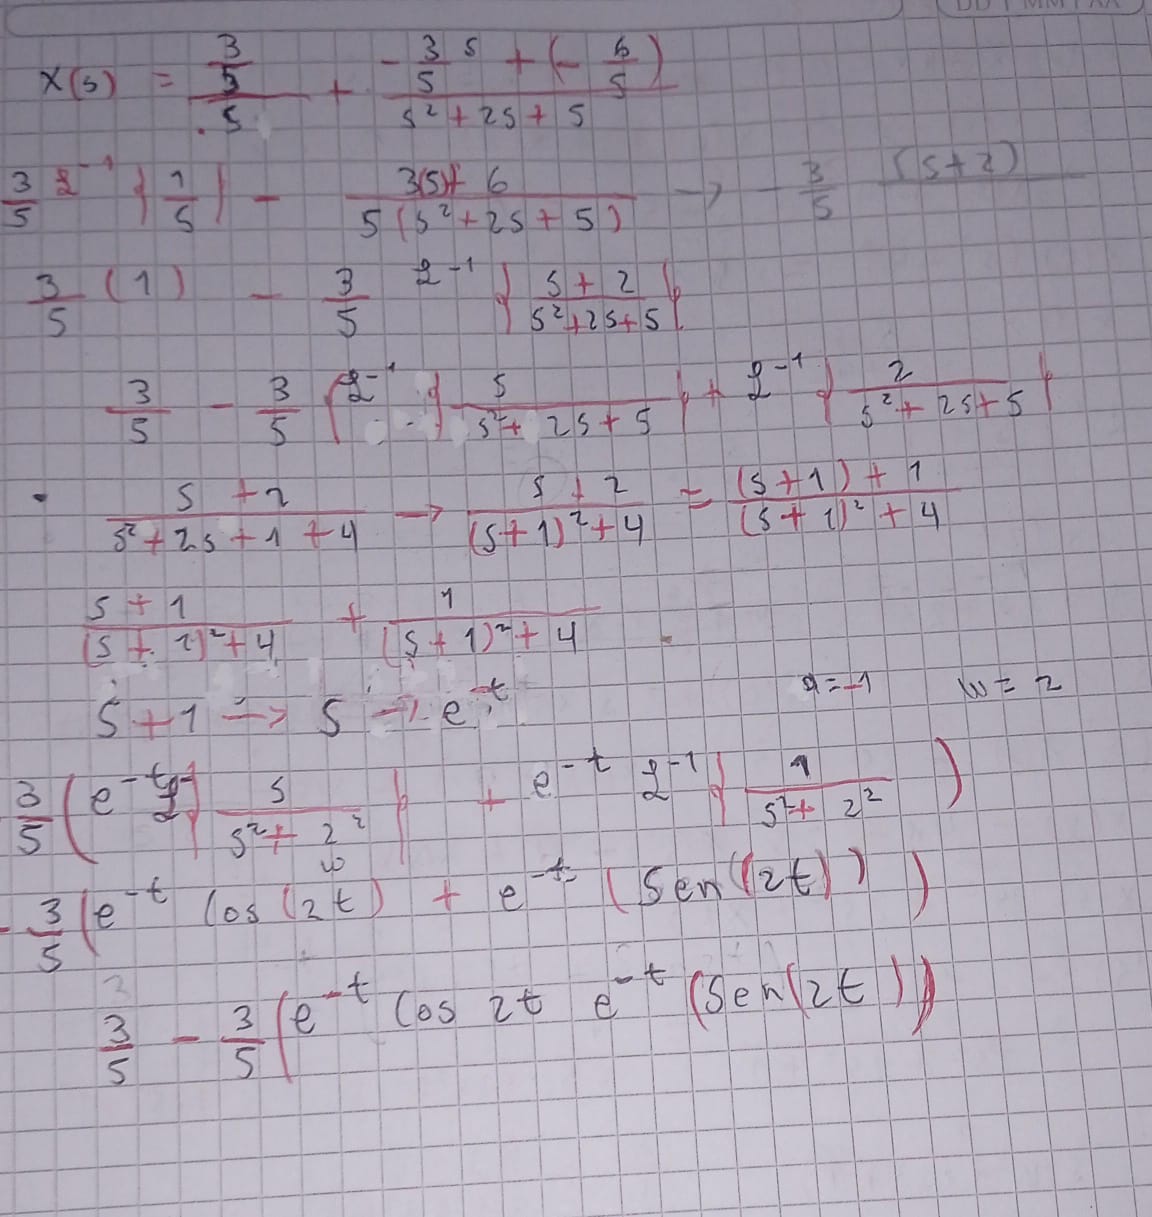 x(s) = \frac{\frac{3}{5}}{s} + \frac{-\frac{3}{5}s + (-\frac{6}{5})}{s² + 2s + 5}
\frac{3}{5} ℒ⁻¹ {\frac{1}{s}} - \frac{3(s) + 6}{5(s² + 2s + 5)} → - \frac{3}{5} (s+2)
\frac{3}{5} (1) - \frac{3}{5} ℒ⁻¹ {\frac{s + 2}{s² + 2s + 5}}
\frac{3}{5} - \frac{3}{5} (ℒ⁻¹ {\frac{s}{s² + 2s + 5}} + ℒ⁻¹ {\frac{2}{s² + 2s + 5}}
• \frac{s + 2}{s² + 2s + 1 + 4} → \frac{s + 2}{(s+1)² + 4} = \frac{(s+1) + 1}{(s+1)² + 4}
\frac{s + 1}{(s + 1)² + 4} + \frac{1}{(s + 1)² + 4}
s + 1 → s → e^{-t} a = -1 w = 2
\frac{3}{5} (e^{-t} ℒ⁻¹ {\frac{s}{s² + 2²}} + e^{-t} ℒ⁻¹ {\frac{1}{s² + 2²})
w
- \frac{3}{5} (e^{-t} Cos (2t) + e^{-t} (Sen (2t)))
\frac{3}{5} - \frac{3}{5} (e^{-t} Cos 2t e^{-t} (Sen (2t)))